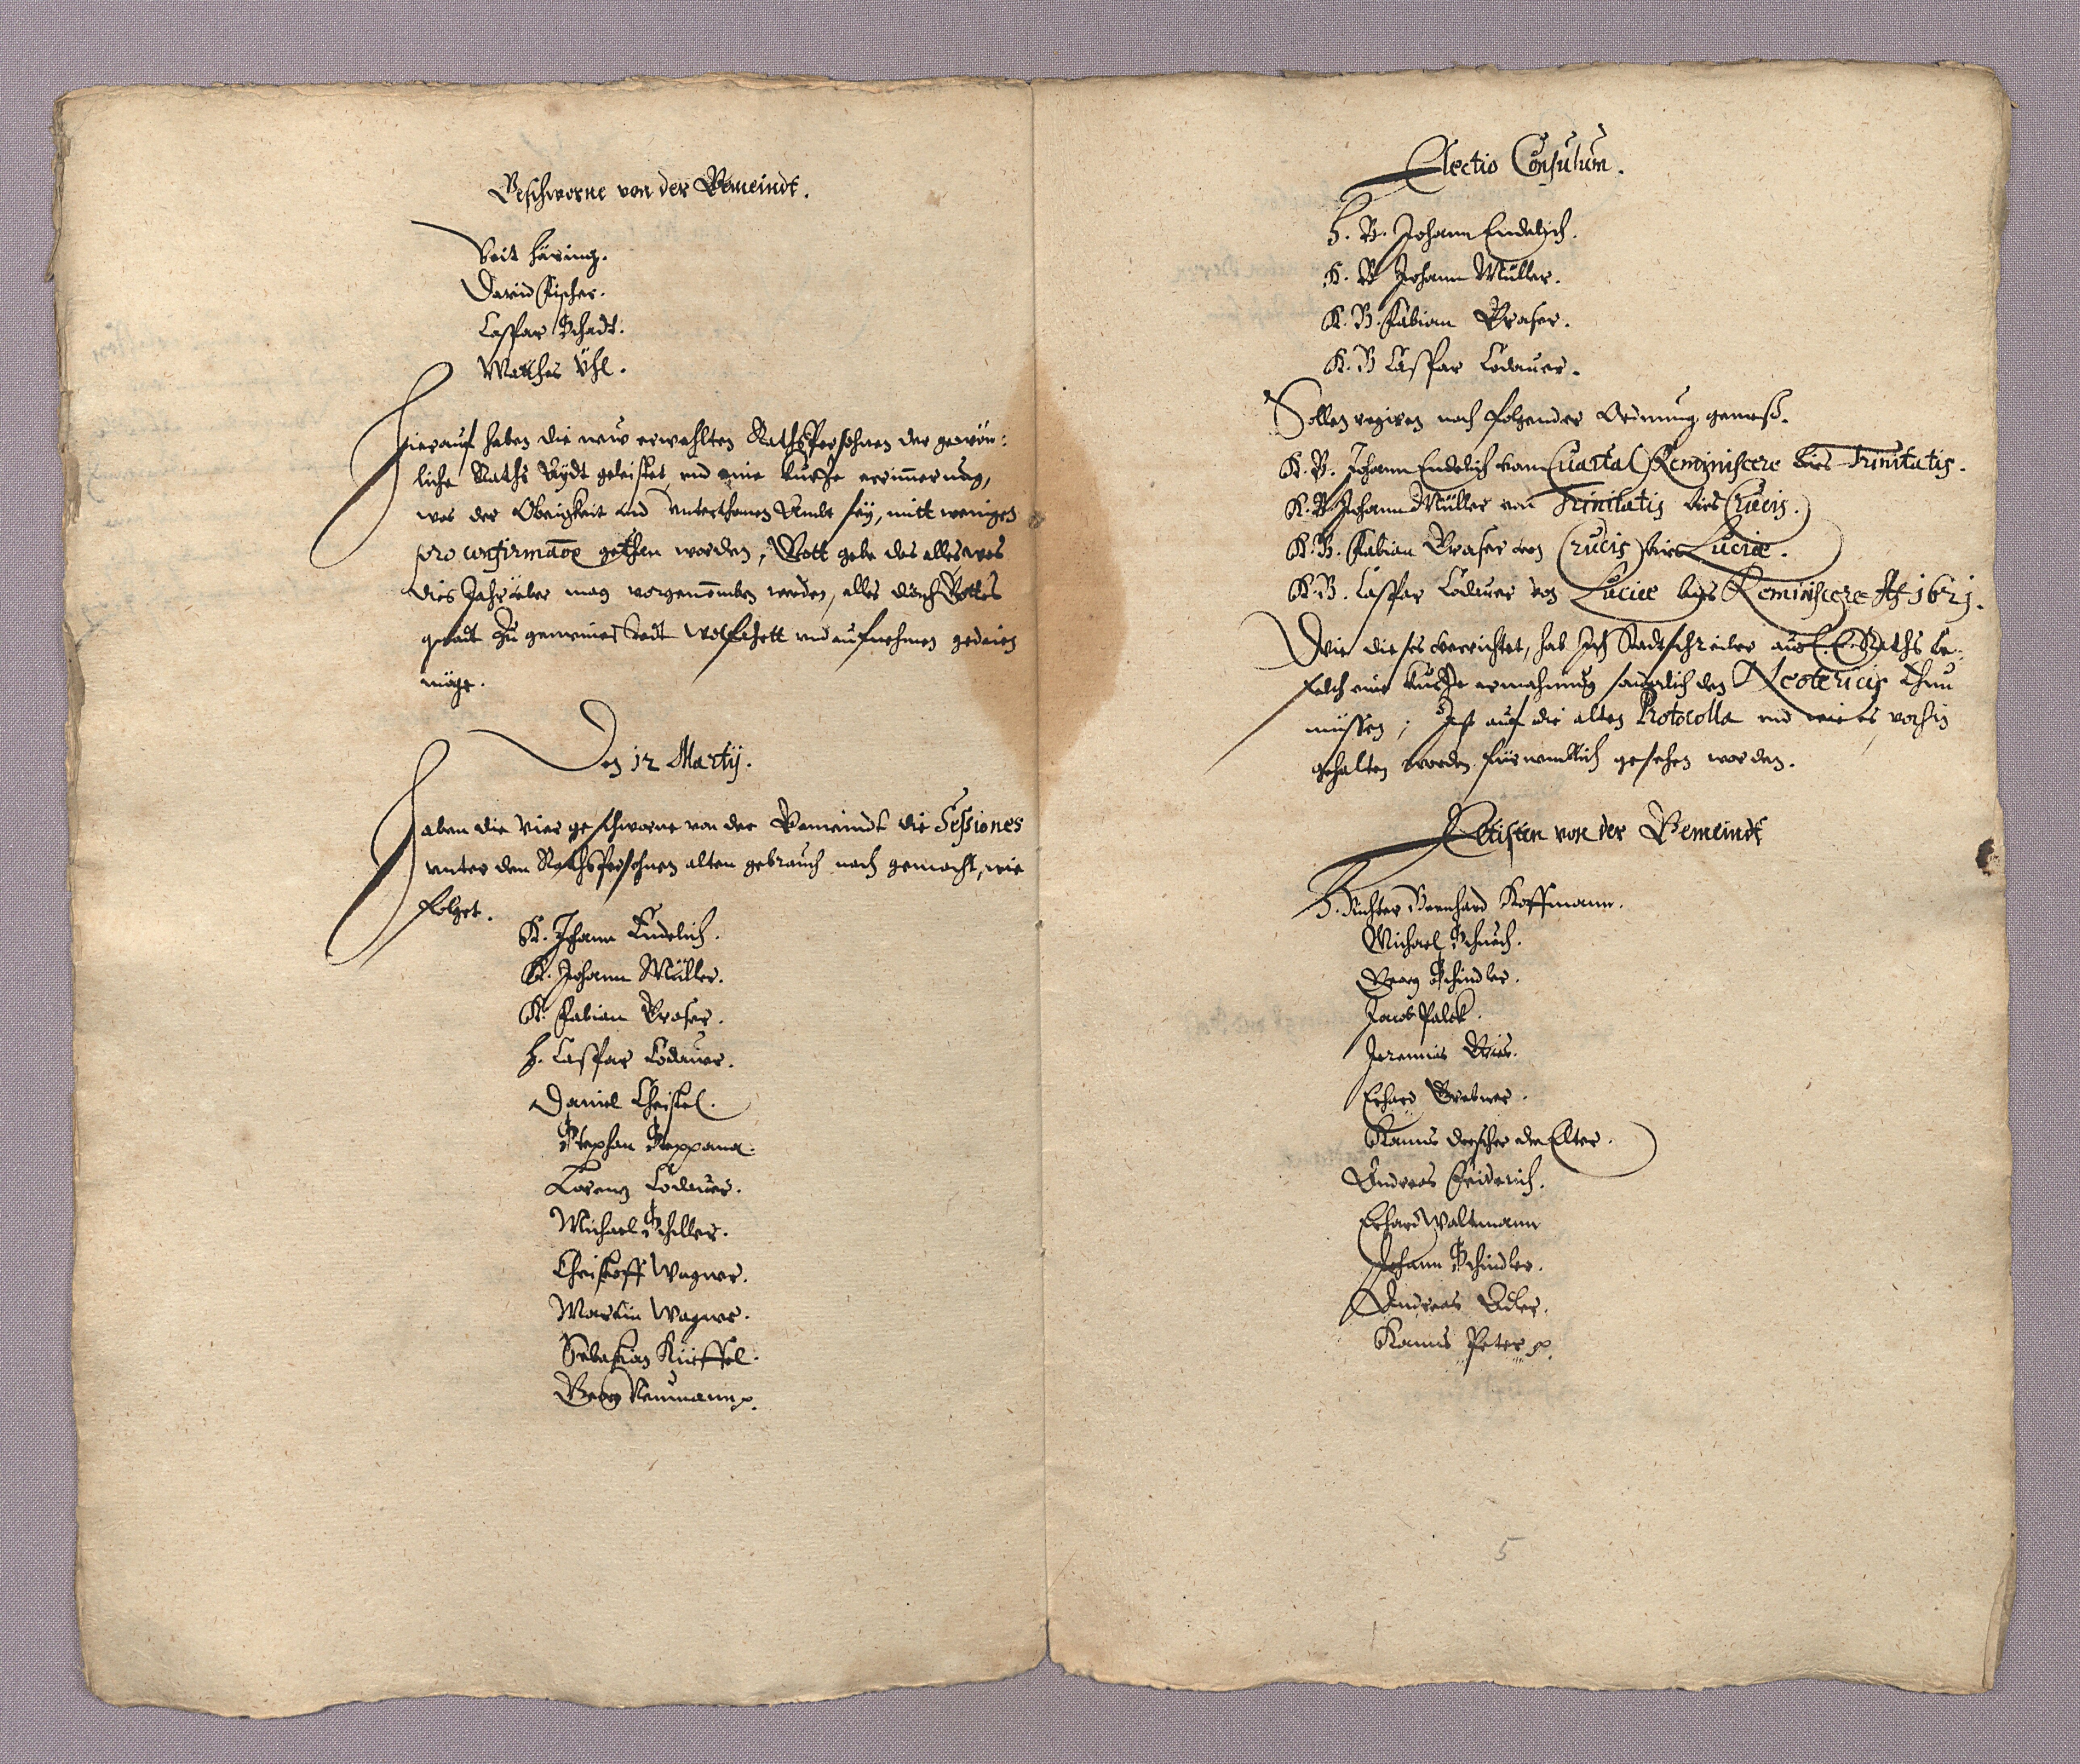 Geschworne von der Gemeindt.
Veit Häring.
David Fischer.
Caspar Schadt.
Mathes Uhl.
Hierauf haben die new erwehlten Rathspersohnen der gewön:
liche Raths Aydt geleistet, vnd eine kurtze erinnerung,
was der Obrigkeit vnd Vnterthanen Ambt sey, mitt wenigen
pro confirmatione gethan worden, Gott gebe das alles was
dies Jahr über mag vorgenomben werden, alles durch Gottes
gnadt zu gemeiner Stadt wolfahrtt vnd aufnehmen gedeien
möge.
Den 12 Martij.
Haben die Vier geschworne von der Gemeindt die Sessiones
vnter den Rathspersohnen alten gebrauch nach gemacht, wie
folget.
H. Johann Endelich.
H. Johann Müller.
H. Fabian Graser.
H. Caspar Codauer.
Daniel Christel.
Stephan Steppana.
Lorenz Codauer.
Michael Schiller.
Christoff Wagner.
Martin Wagner.
Sebastian Küeffel.
Georg Neumann p.
Electio Consulum.
H. B. Johann Endelich.
H. B Johann Müller.
H. B. Fabian Graser.
H. B Caspar Codauer.
Sollen regiren nach folgender Ordnung gemeß.
H. B. Johann Endelich vom Quartal Reminiscere bies Trinitatis.
H. B Johann Müller von Trinitatis bies Crucis.
H. B. Fabian Graser von Crucis bies Luciæ.
H. B. Caspar Codauer von Luciæ bies Reminiscere A. 1621.
Wie dieses verrichtet, hab Ich Stadtschreiber aus E. E. Raths be-
felch eine kurtze ermahnung sonderlich den Neotericis thun
müssen; Ist auf die alten Protocolla vnd wie es vorhin
gehalten worden fürnemblich gesehen worden.
Eltisten von der Gemeindt
H. Richter Bernhard Hoffmann.
Michael Schuch.
Georg Schindler.
Jacob Palck.
Jeremias
Erhard Grebner.
Hanns Drescher der Elter.
Andreas Friderich.
Erhard Waltmann
Johann Schindler.
Andreas Adler.
Hanns Peter p.
5